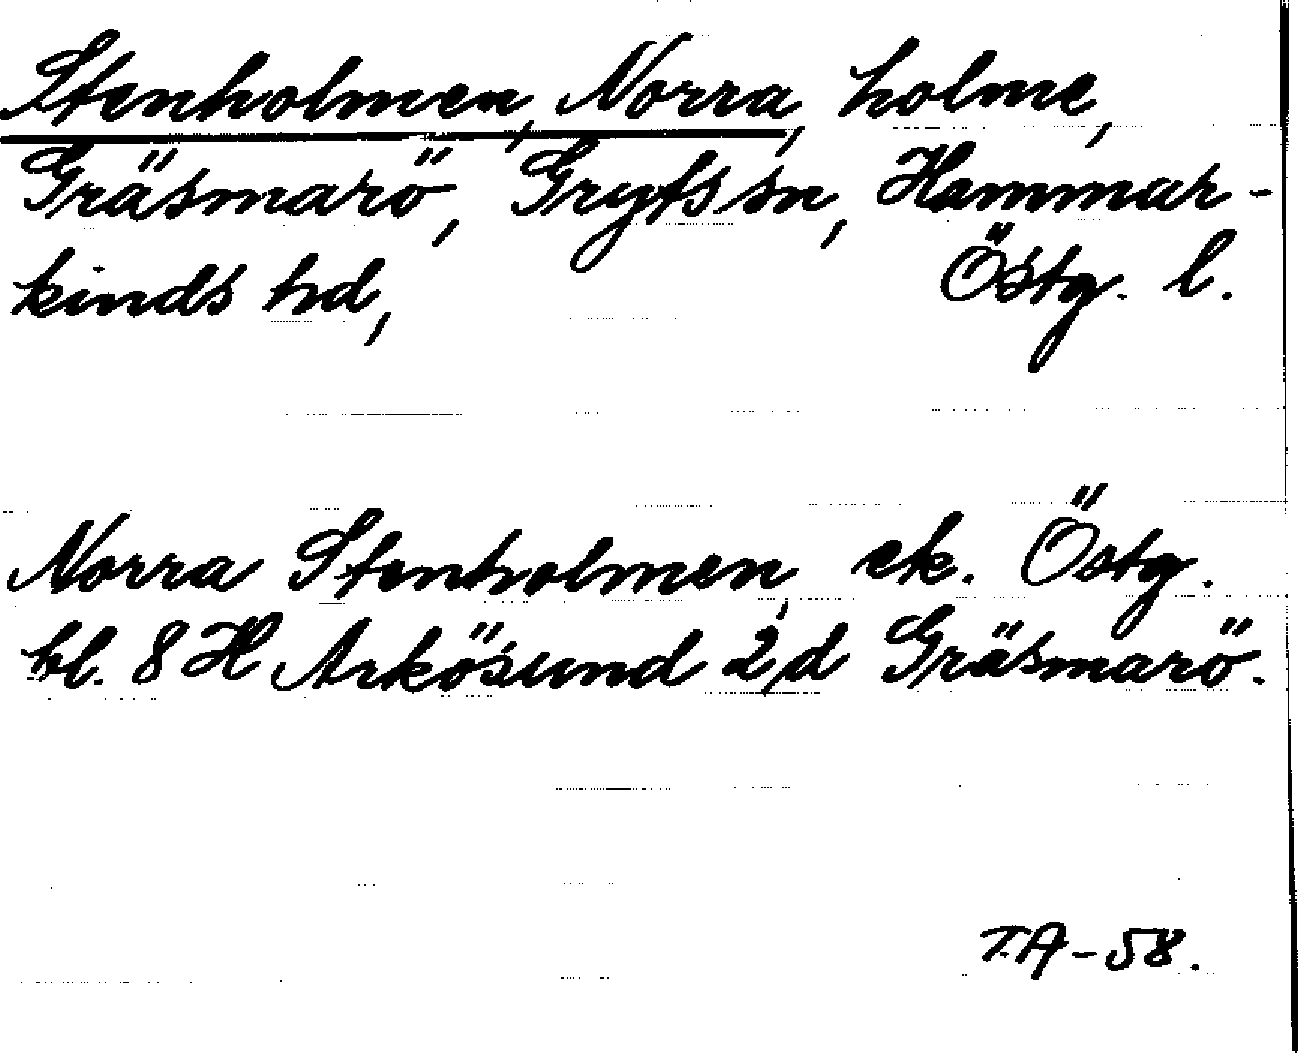 Stenholmen, Norra, holme,
Gräsmarö, Gryts sn, Hammar-
kinds hd, Östg. l.
Norra Stenholmen, ek. Östg.
bl. 8 H Arkösund 2,d Gräsmarö.
T.A-58.